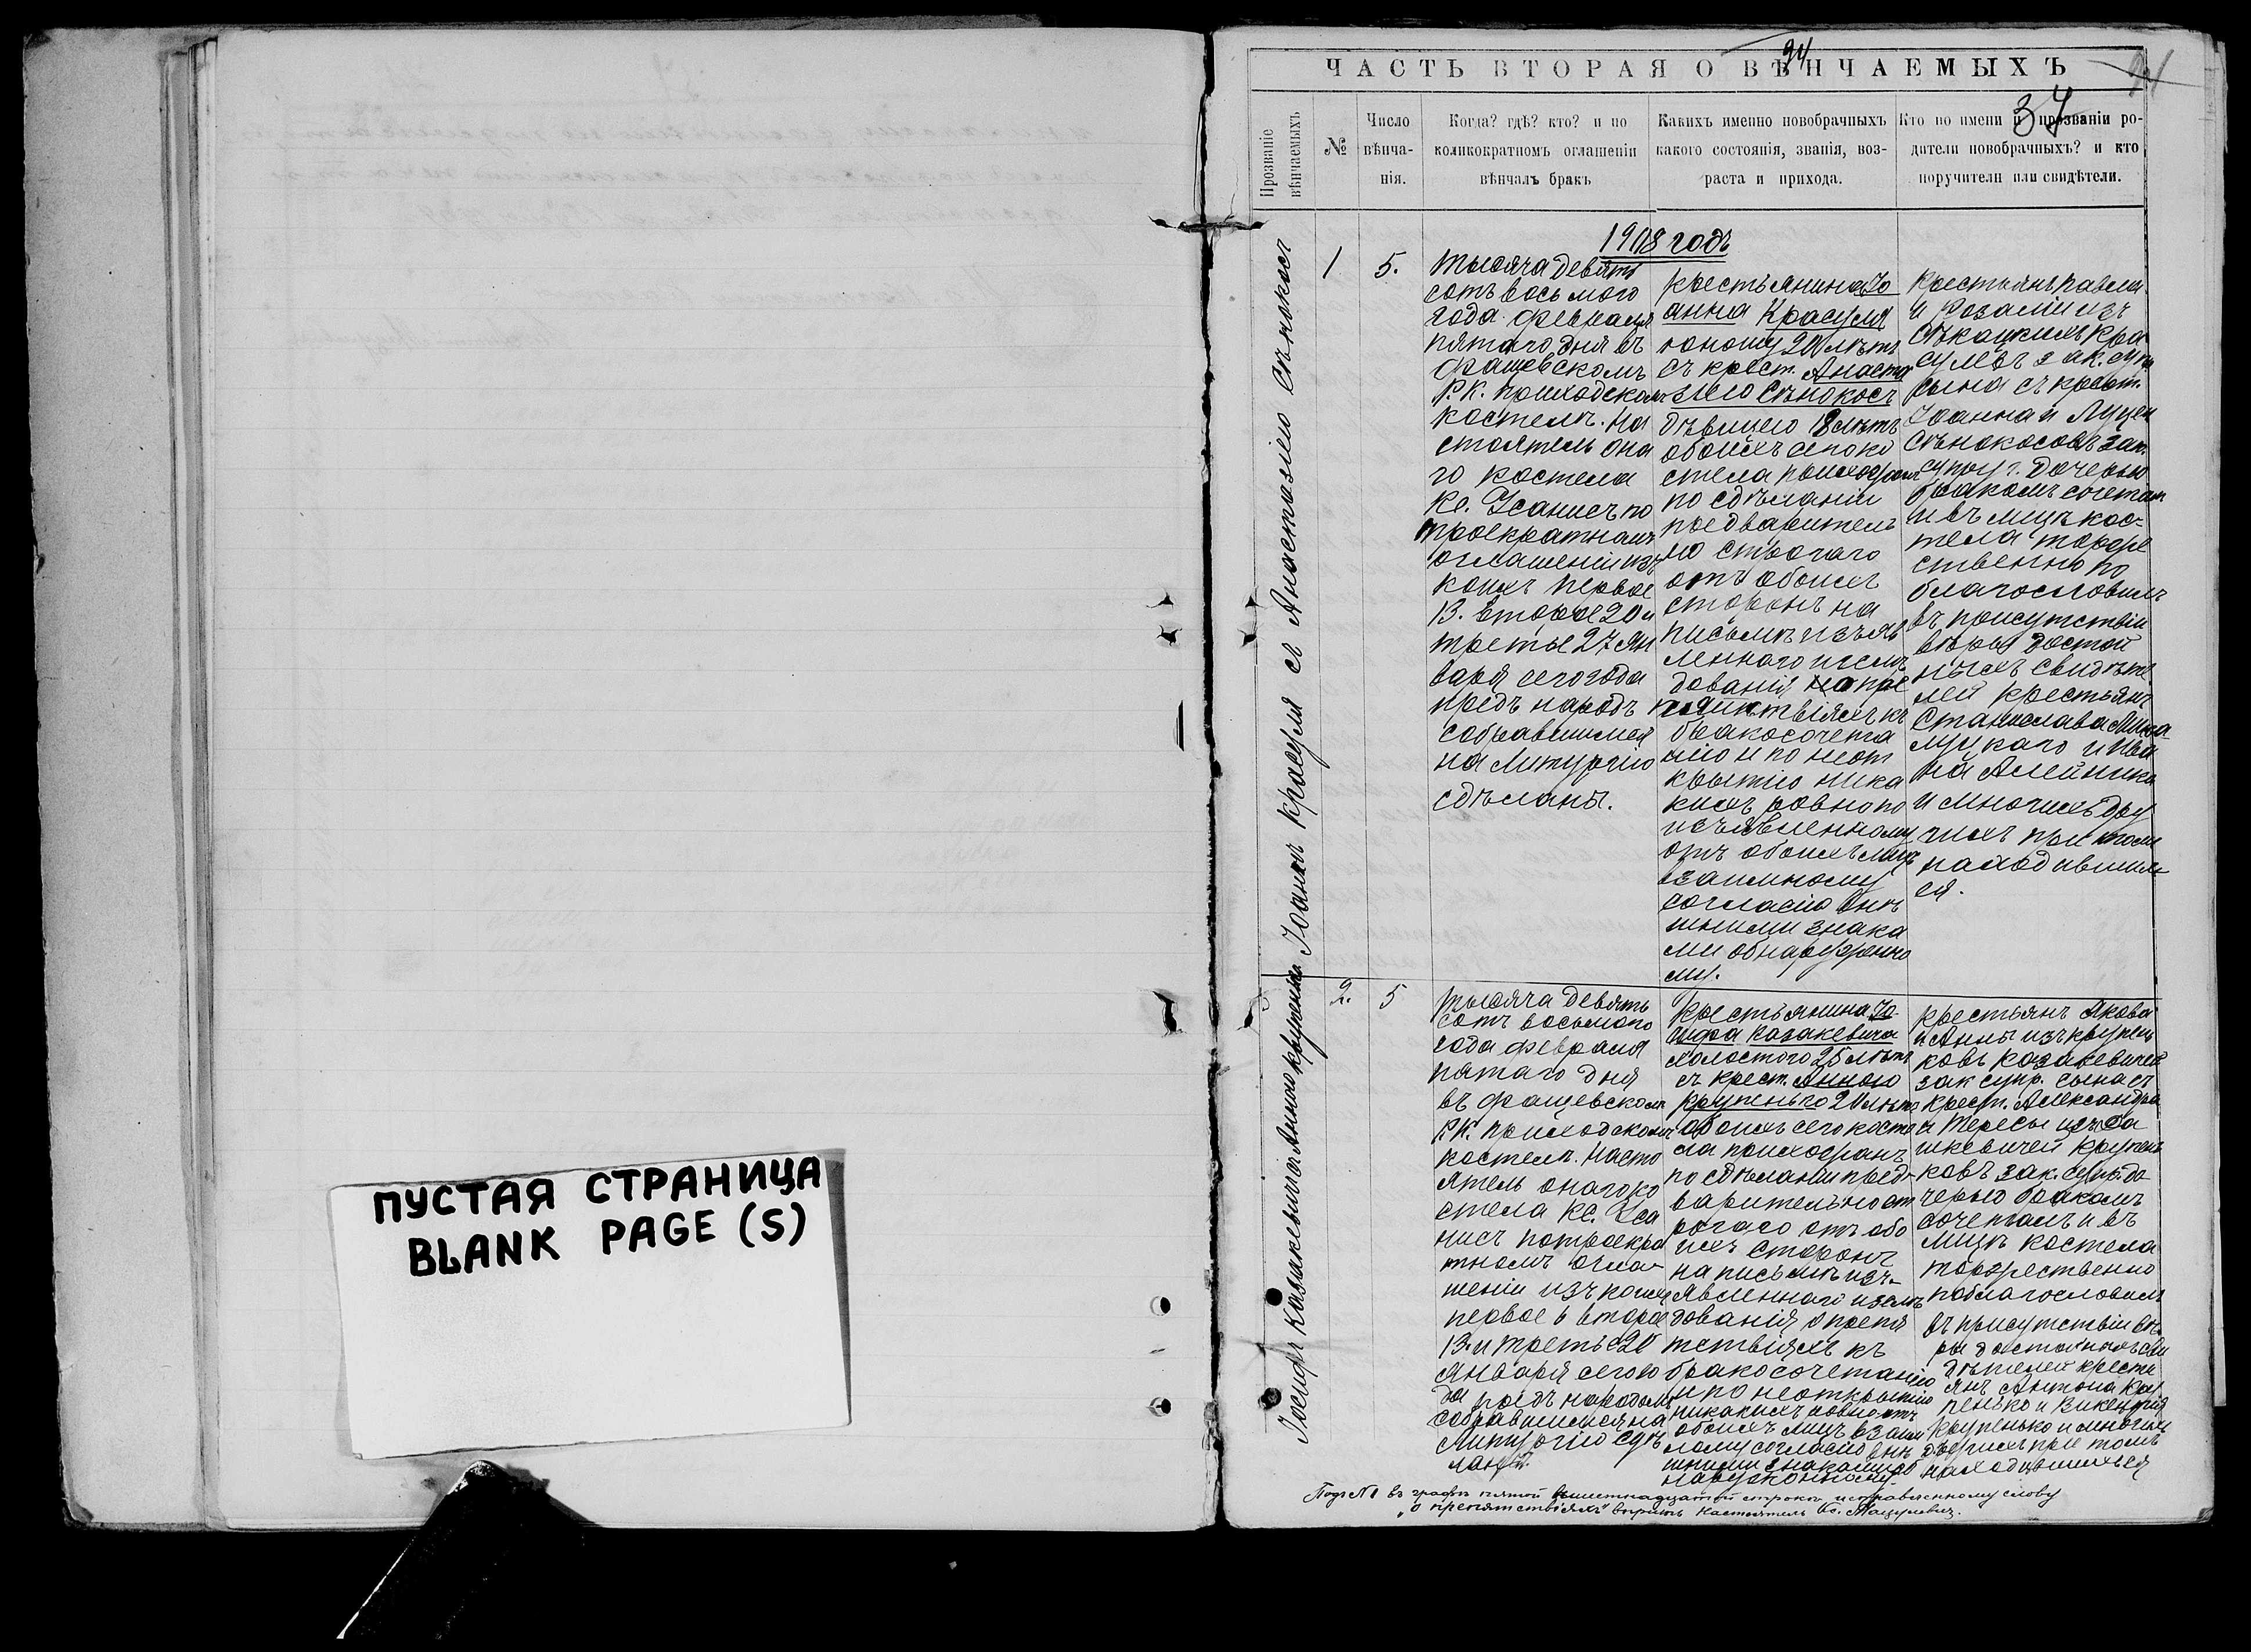 ПУСТАЯ СТРАНИЦА
BLANK PAGE (S)
ЧАСТЬ ВТОРАЯ О ВѢНЧАЕМЫХЪ
34
Прозваніе
вѣнчаемыхъ
№
Число
вѣнча-
нія.
Когда? гдѣ? кто? и по
коликократномъ оглашеніи
вѣнчалъ бракъ
Какихъ именно новобрачныхъ
какого состоянія, званія, воз-
раста и прихода.
Кто по имени и прозваніи ро-
дители новобрачныхъ? и кто
поручители или свидѣтели.
1908 годъ
Іоаннъ Красуля съ Анастазіею Сѣнокосъ
1
5.
Тысяча девять
сотъ восьмого
года февраля
пятаго дня въ
Фащевскомъ
Р.К. приходскомъ
костелѣ. На
стоятель она
го костела
Кс. Усанисъ по
троекратномъ
оглашеніи изъ
коихъ первое
13. второе 20 и
третье 27 Ян
варя сего года
предъ народъ
собравшимся
на Литургію
сдѣланы.
крестьянина Іо
анна Красуля
юношу 20 лѣтъ
съ крест. Анаста
зіею Сѣнокосъ
дѣвицею 18 лѣтъ
обоихъ сего ко
стела прихожанъ
по сдѣланіи
предварител
но строгаго
отъ обоихъ
сторонъ на
письмѣ изъяв
леннаго изслѣ
дованія о пре
пятствіяхъ къ
бракосочета
нію и по неот
крытію ника
кихъ ровно по
изъявленному
отъ обоихъ лицъ
взаимному
согласію внѣ
шними знака
ми обнаруженно
му.
Крестьянъ Павла
и Розаліи изъ
Сѣкацкихъ Кра
сулевъ зак. супр.
сына съ крест.
Іоанна и Луцеи
Сѣнокосовъ зак.
супруг. дочерью
бракомъ сочеталъ
и въ лицѣ кос-
тела торже
ственно по
благословилъ
въ присутствіи
вѣры достой
ныхъ свидѣте
лей крестьянъ
Станислава
и Ива
на Алейника
и многихъ дру
гихъ при томъ
находившихъ
ся.
Іосифъ Казакевичъ съ Анною Крупенька
2.
5
Тысяча девять
сотъ восьмого
года февраля
пятаго дня
въ Фащевскомъ
Р.К. приходскомъ
костелѣ. Насто
ятель онаго ко
стела Кс. Уса
нисъ по троекра
тномъ огла-
шеніи изъ коихъ
первое 6 второе
13. и третье 20
Января сего го
да предъ народомъ
собравшимся на
Литургію сдѣ
ланы.
Крестьянина Іо-
сифа Казакевича
холостого 25 лѣтъ
съ крест. Анною
Крупенько 20 лѣтъ
обоихъ сего косте
ла прихожанъ
по сдѣланіи пред-
варительно ст
рогаго отъ обо
ихъ сторонъ
на письмѣ изъ-
явленнаго изслѣ
дованія о препя
тствіяхъ къ
бракосочетанію
и по неоткрытію
никакихъ ровно отъ
обоихъ лицъ взаим
ному согласію внѣ
шними знаками об
наруженному
крестьянъ Якова
и Анны изъ Крупень
ковъ Казакевичей
зак. супр. сына съ
крест. Александра
и Тересы изъ
шкевичей Крупень
ковъ зак. супр. до
черью бракомъ
сочеталъ и въ
лицѣ костела
торжественно
поблагословилъ
въ присутствіи вѣ-
ры достойныхъ сви
дѣтелей кресть
янъ Антона Кру
пенько и Викентія
Крупенько и многихъ
другихъ при томъ
находившихся
Подъ №1 въ графѣ пятой въ шестнадцатой строкѣ исправленному слову
„о препятствіяхъ" вѣрить Настоятель Кс. Мацулевичъ.